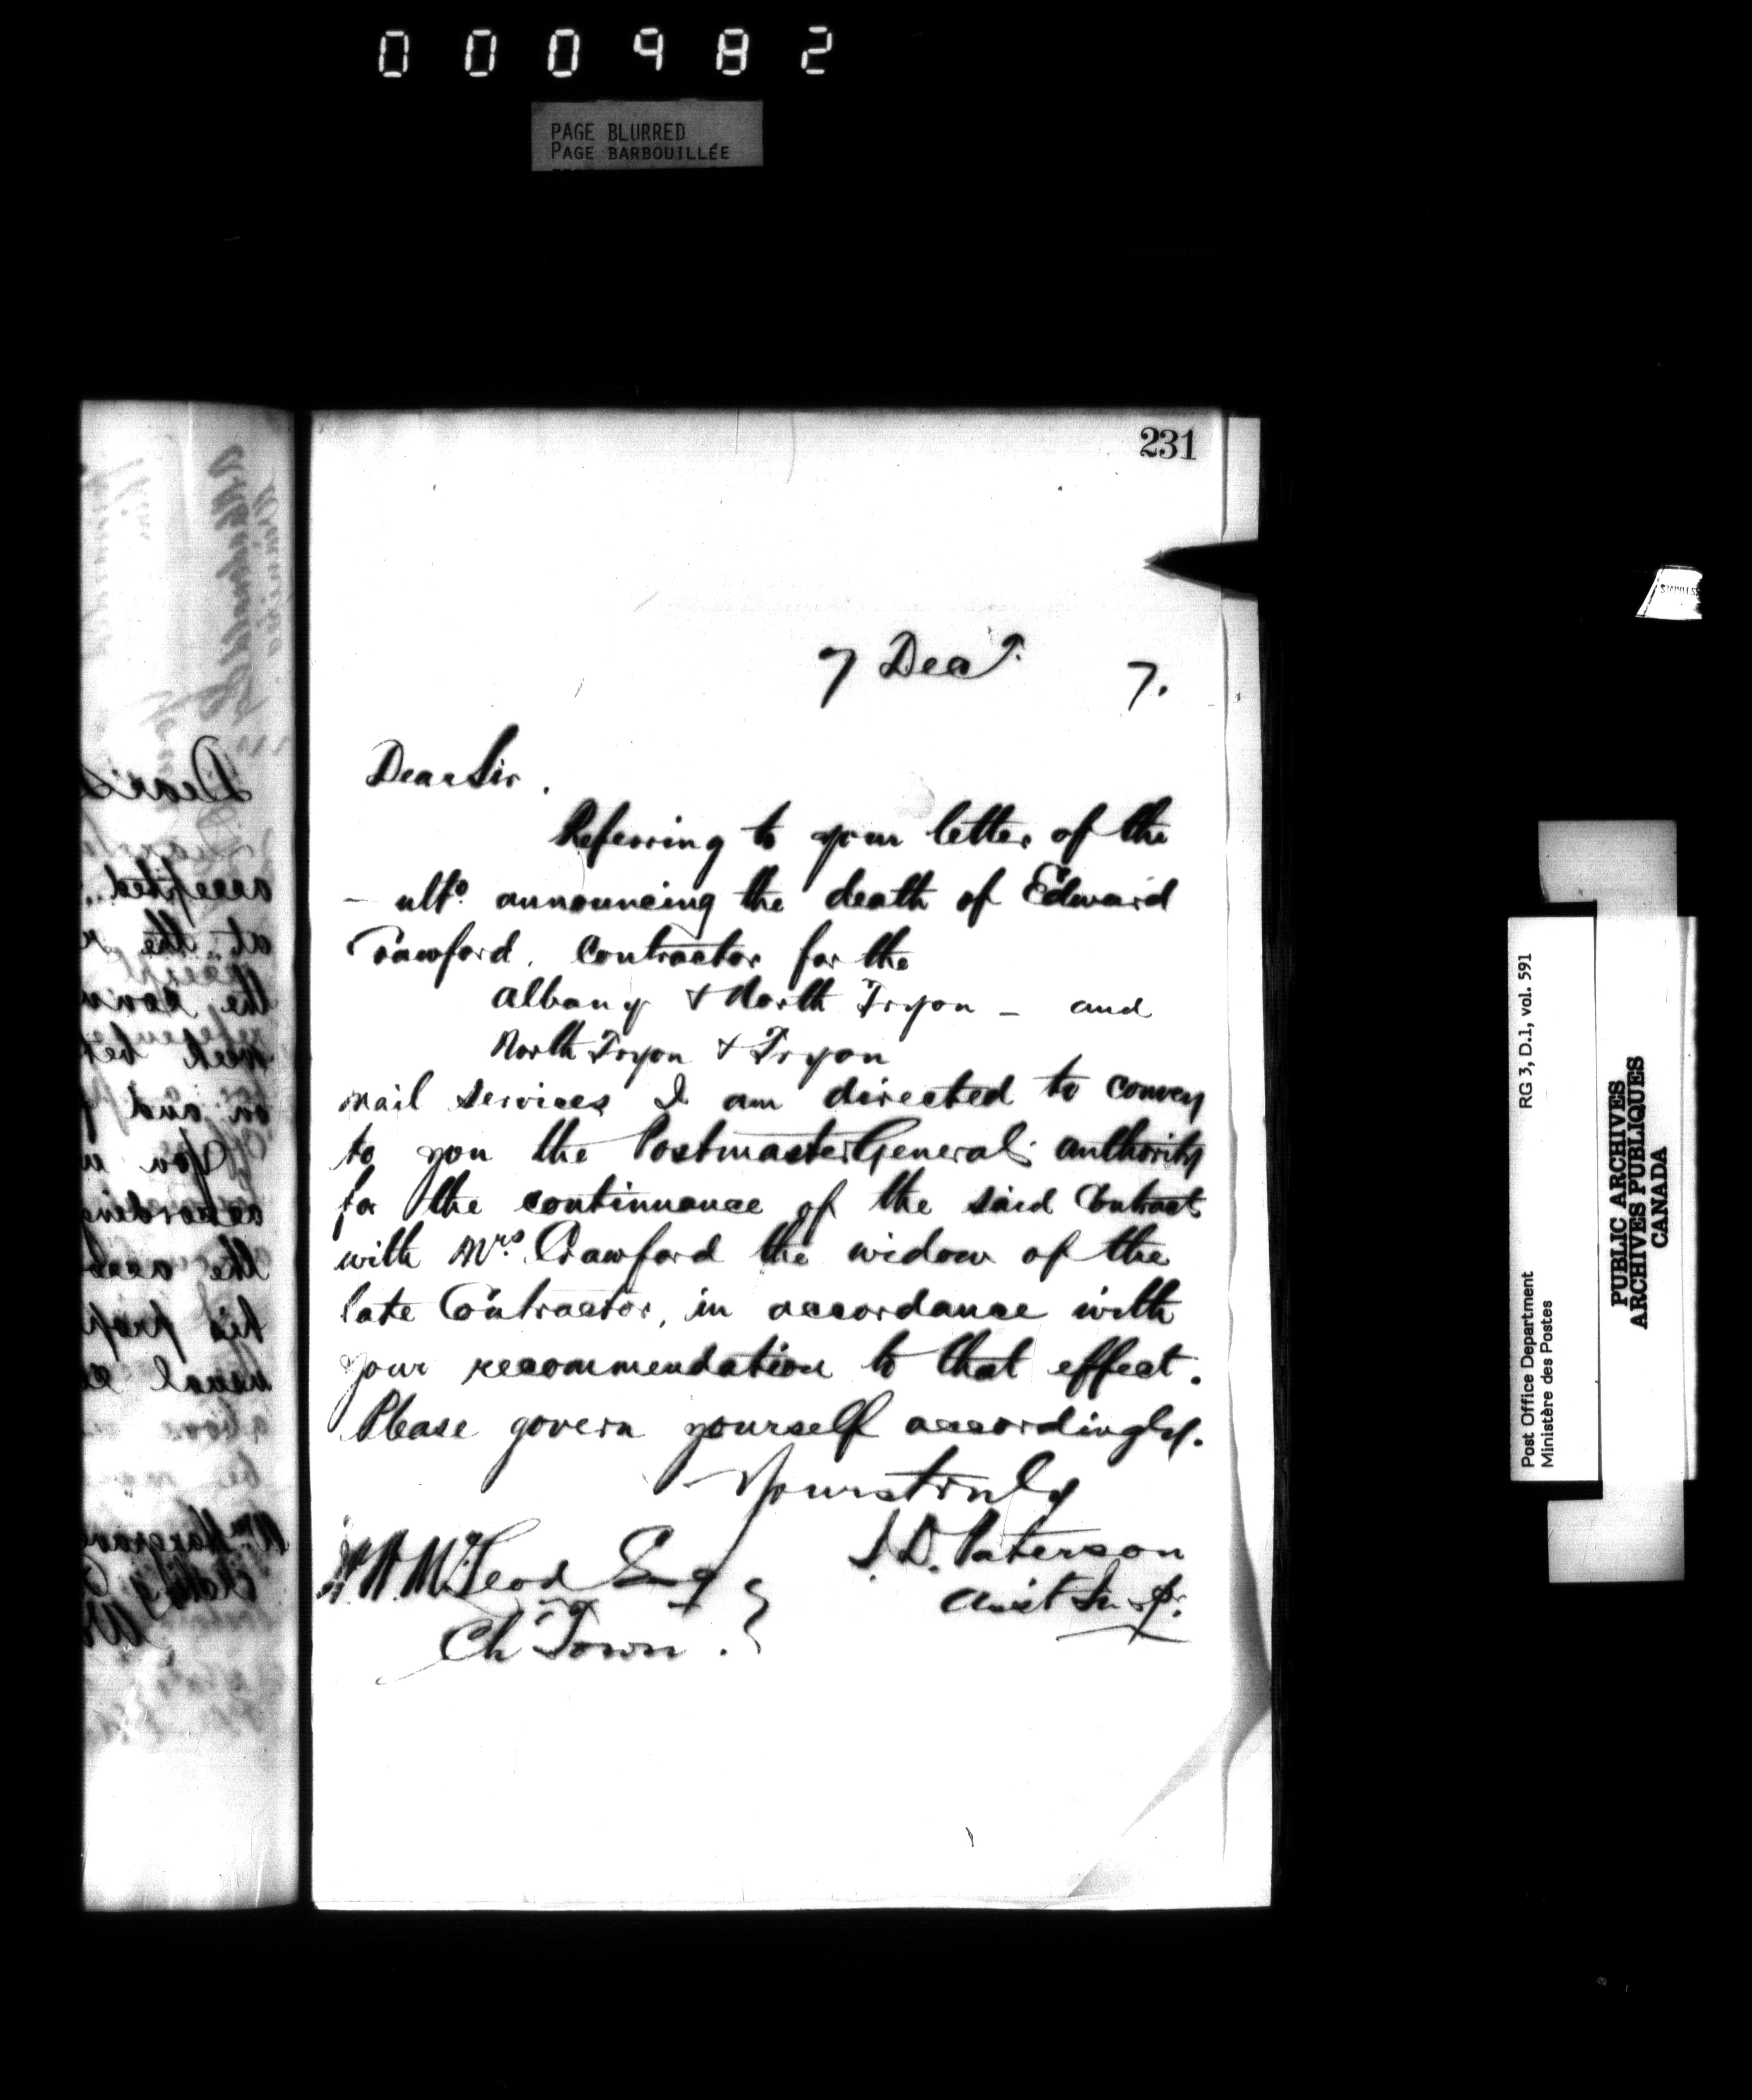 000982
PAGE BLURRED
PAGE BARBOUILLÉE
231
7 Decr. 7.
Dear Sir.
Referring to your letter of the
– ulto. announcing the death of Edward
Crawford, Contractor for the
Albany & North Tryon – and
North Tryon & Tryon
mail services I am directed to convey
to you the Postmaster General's authority
for the continuance of the said Contracts
with Mrs. Crawford the widow of the
late Contractor, in accordance with
your recommendation to that effect.
Please govern yourself accordingly.
Yours truly
J. D. Paterson
Asist Insp.
McLeod Esq
Ch Town.
Dear S
accepted
at the
the
on and
You
the
his prop
usual
above
RG 3, D.1, vol. 591
Post Office Department
Ministère des Postes
PUBLIC ARCHIVES
ARCHIVES PUBLIQUES
CANADA
STAINLESS